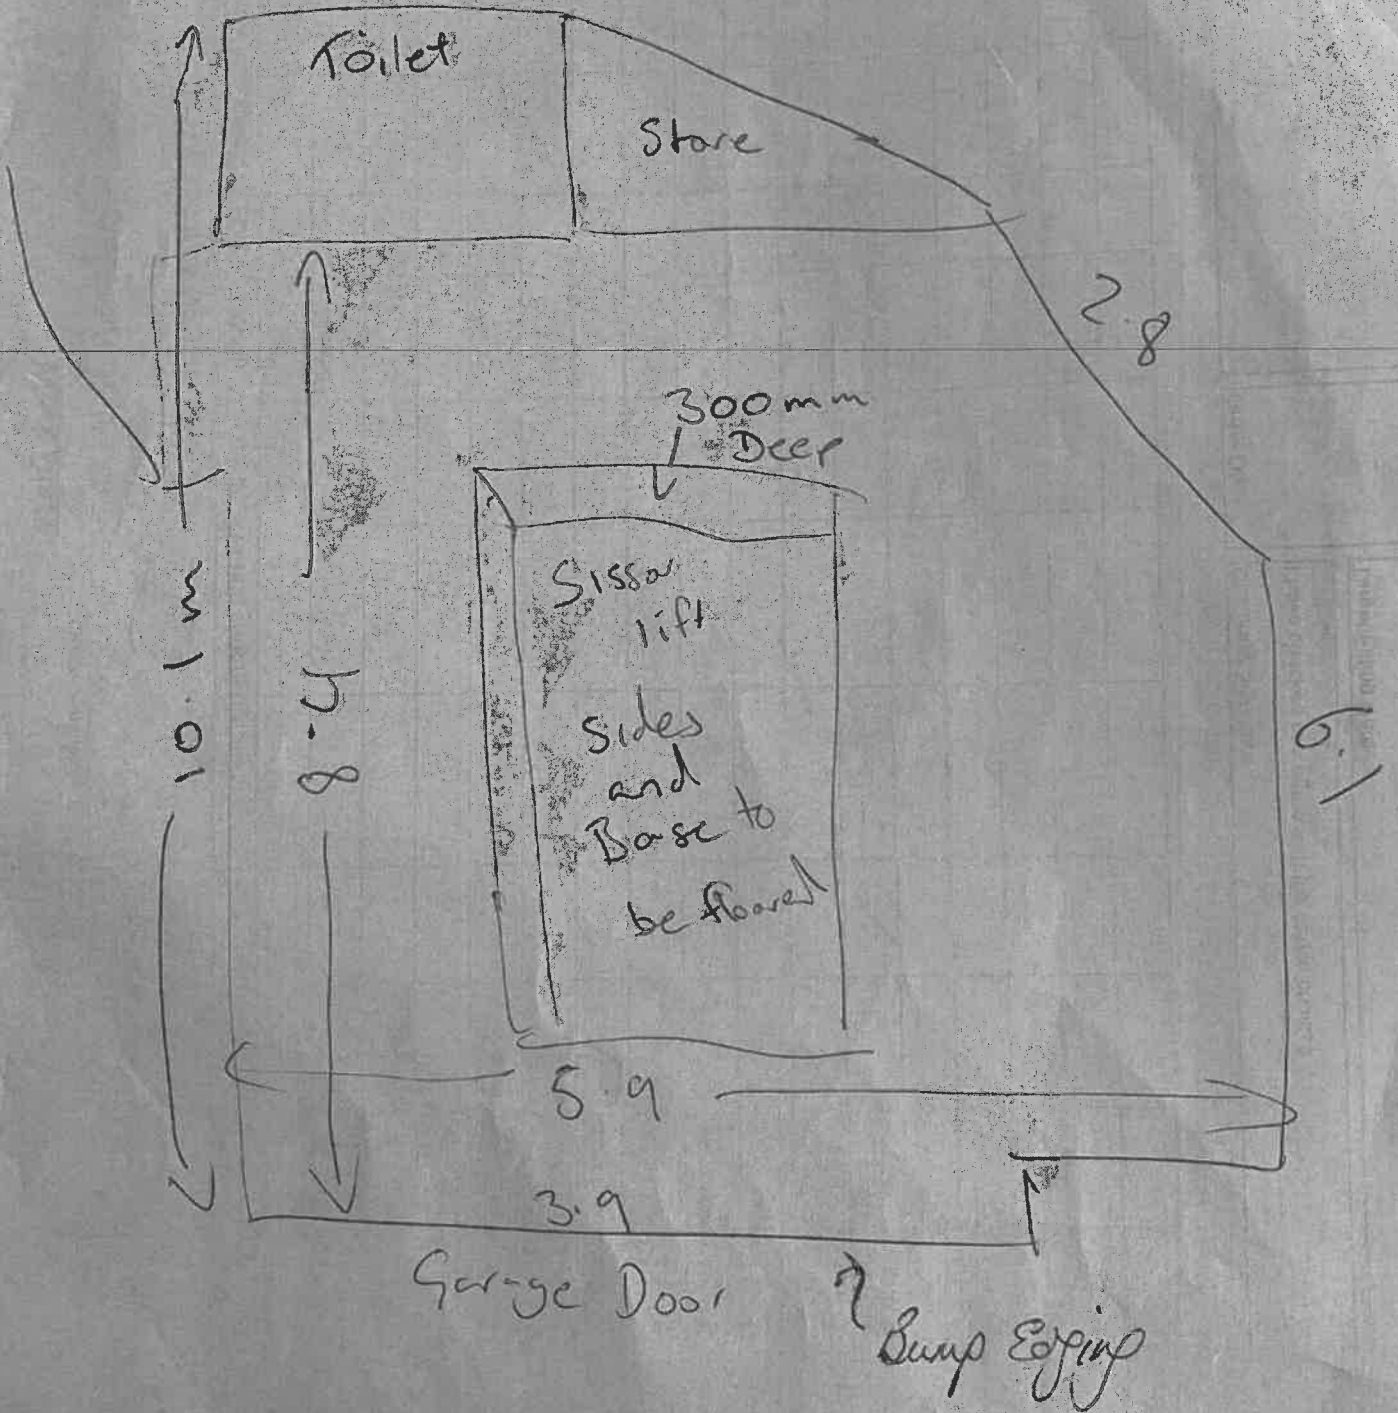 Toilet
Store
2.8
300mm
Deep
Sissor
lift
Sides
and
Base to
be floored
10.1 m
8.4
6.1
5.9
3.9
Garage Door
Bump Edging